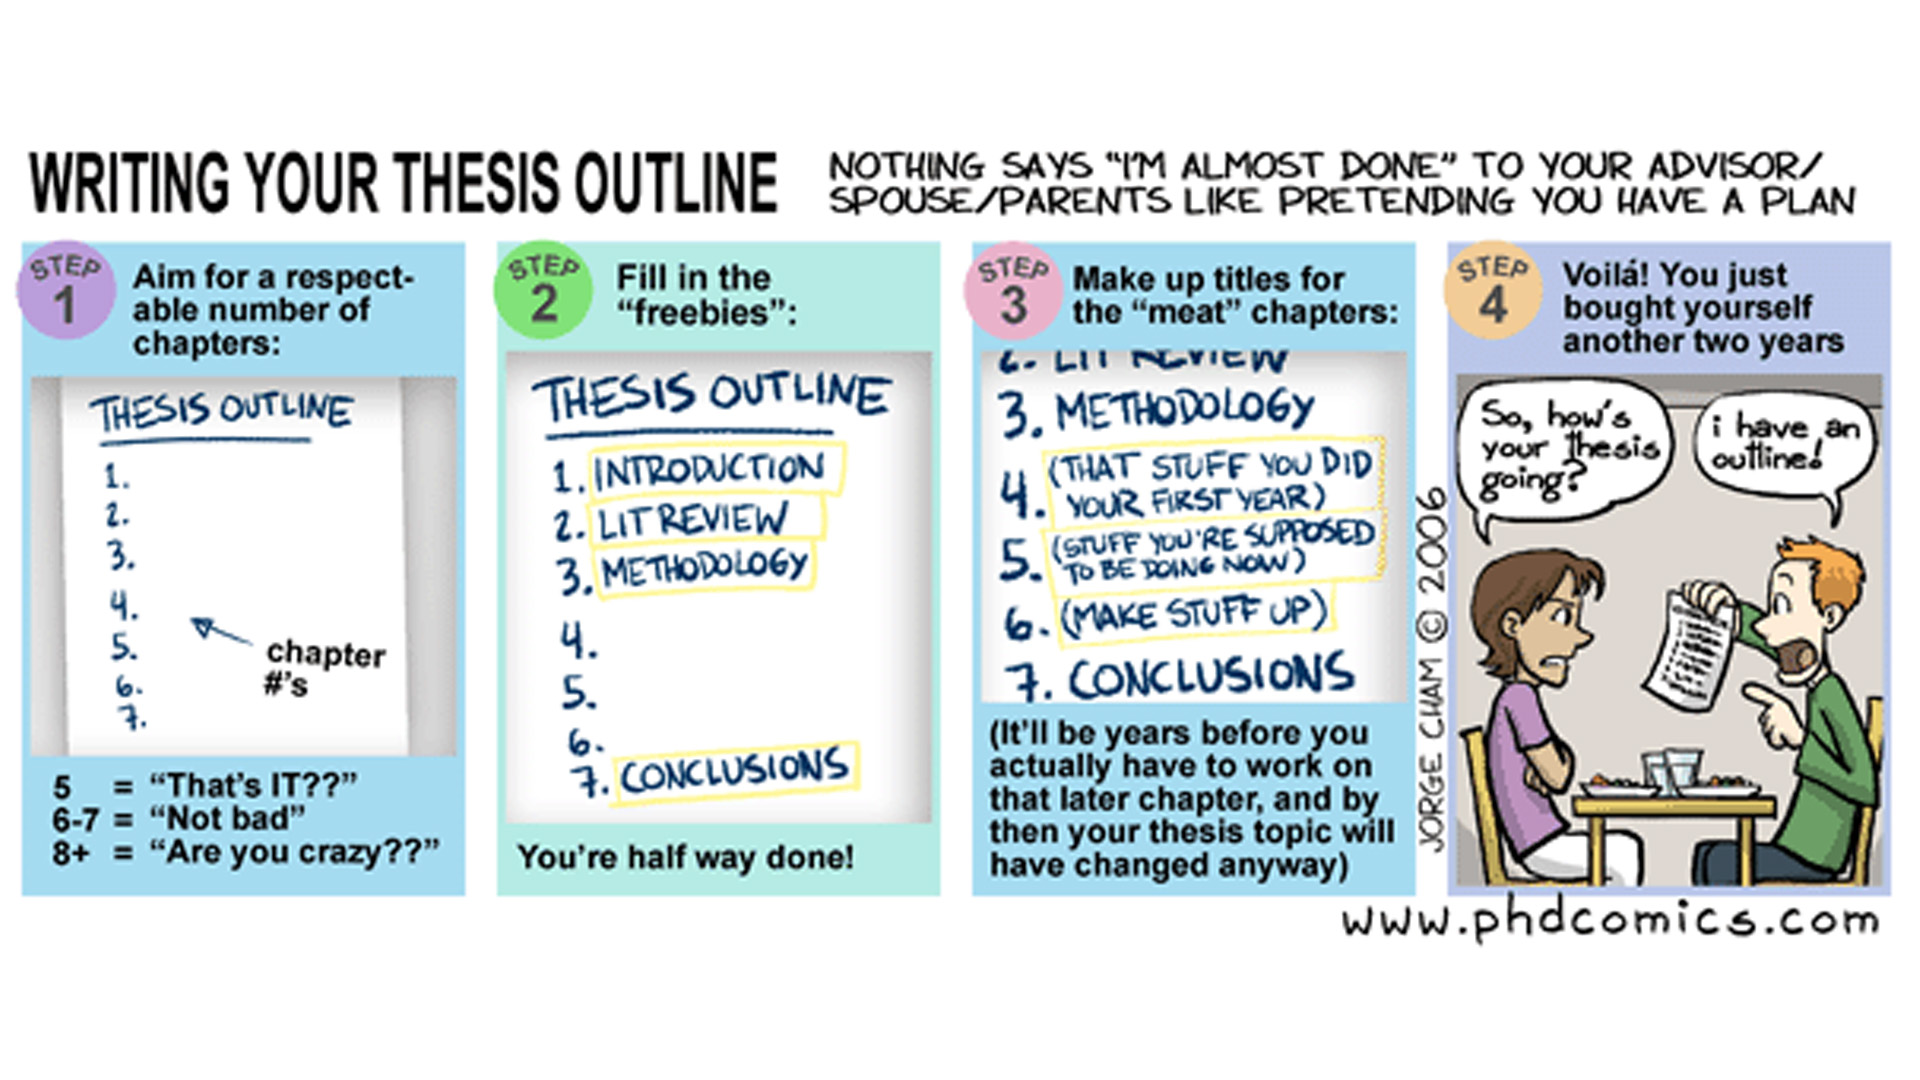 WRITING YOUR THESIS OUTLINE
NOTHING SAYS “I'M ALMOST DONE” TO YOUR ADVISOR/
SPOUSE/PARENTS LIKE PRETENDING YOU HAVE A PLAN
STEP
1
Aim for a respect-
able number of
chapters:
THESIS OUTLINE
1.
2.
3.
4.
5.
6.
7.
chapter
#'s
5 = “That's IT??”
6-7 = “Not bad”
8+ = “Are you crazy??”
STEP
2
Fill in the
“freebies”:
THESIS OUTLINE
1. INTRODUCTION
2. LIT REVIEW
3. METHODOLOGY
4.
5.
6.
7. CONCLUSIONS
You're half way done!
STEP
3
Make up titles for
the “meat” chapters:
2. LIT REVIEW
3. METHODOLOGY
4. (THAT STUFF YOU DID
YOUR FIRST YEAR)
5. (STUFF YOU'RE SUPPOSED
TO BE DOING NOW)
6. (MAKE STUFF UP)
7. CONCLUSIONS
(It'll be years before you
actually have to work on
that later chapter, and by
then your thesis topic will
have changed anyway)
JORGE CHAM © 2006
STEP
4
Voilá! You just
bought yourself
another two years
So, how's
your thesis
going?
i have an
outline!
www.phdcomics.com